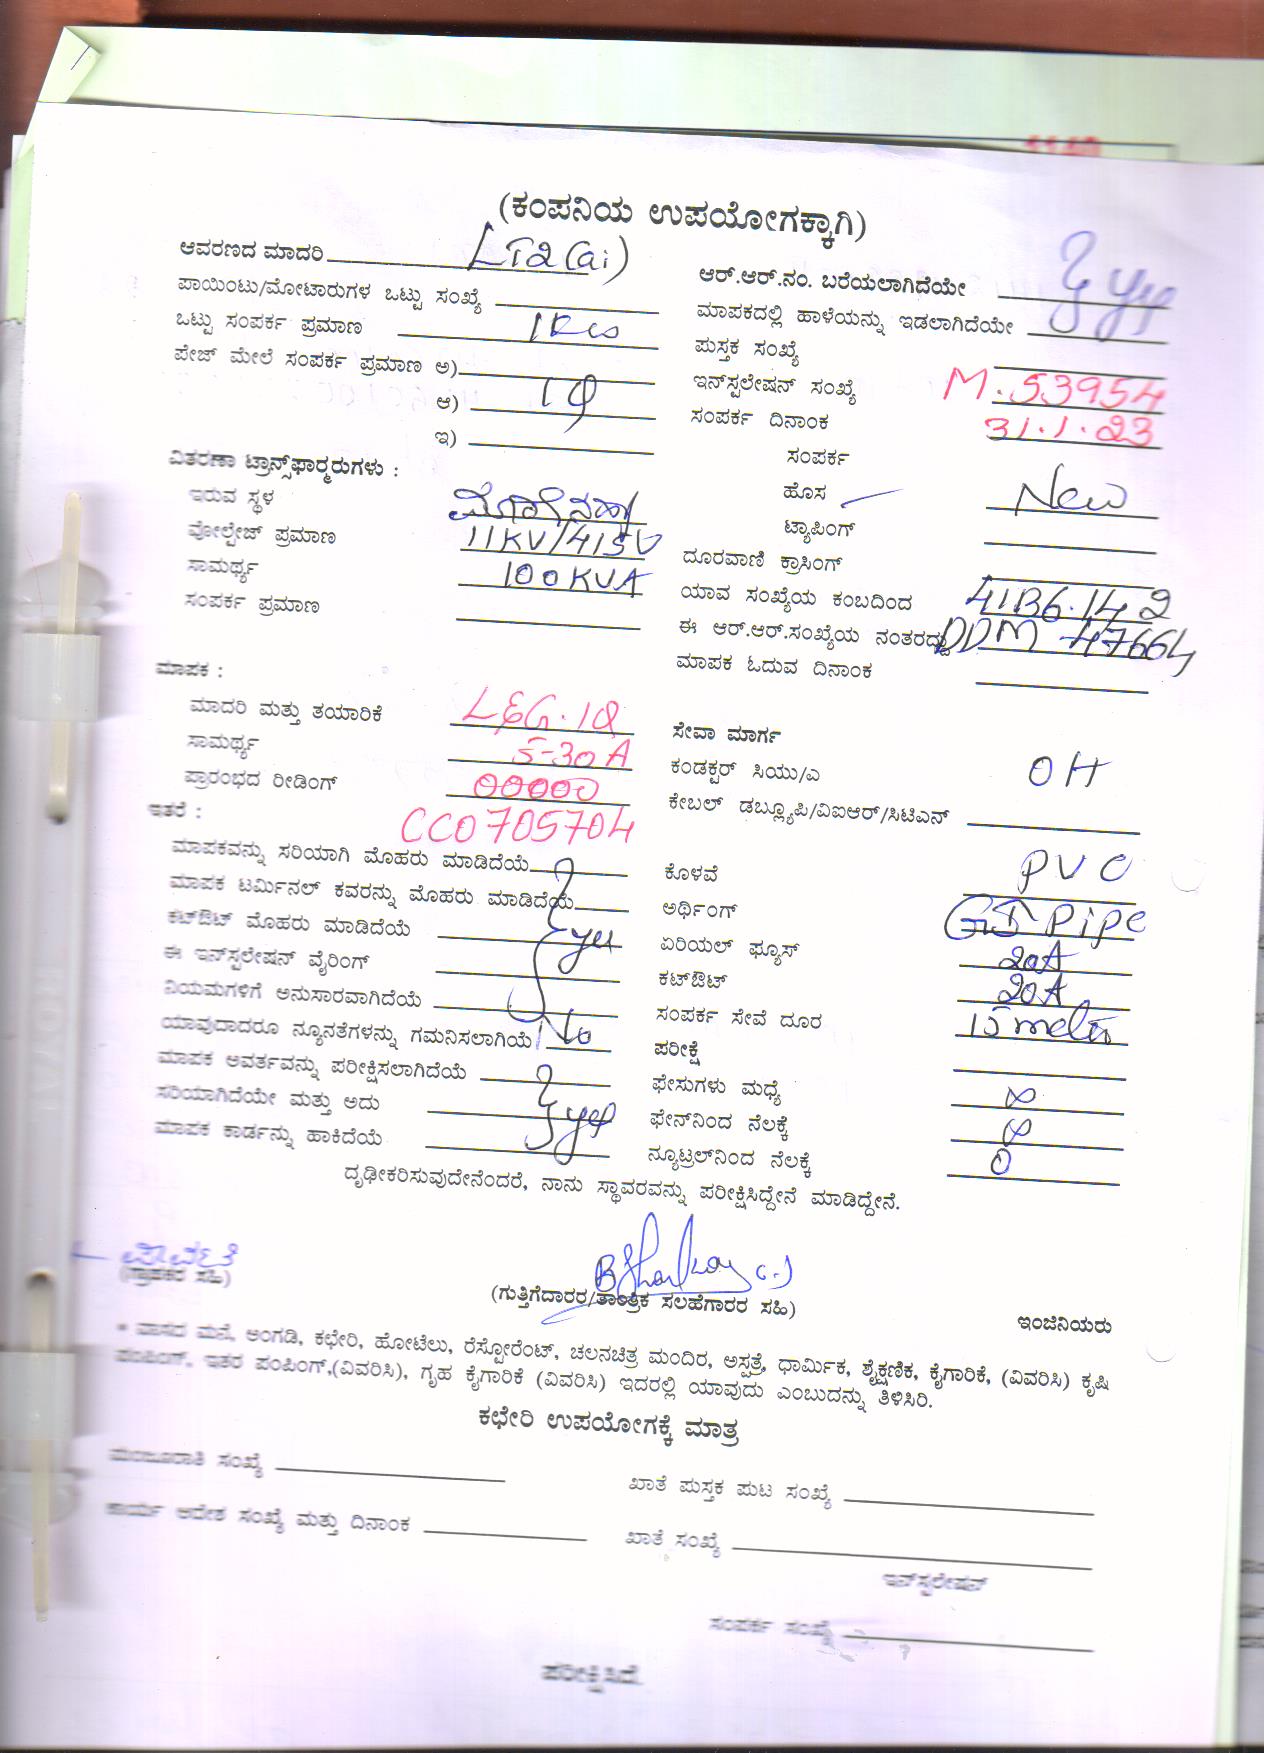 (ಕಂಪನಿಯ ಉಪಯೋಗಕ್ಕಾಗಿ)
ಆವರಣದ ಮಾದರಿ LT2(ai)
ಪಾಯಿಂಟು/ಮೋಟಾರುಗಳ ಒಟ್ಟು ಸಂಖ್ಯೆ
ಒಟ್ಟು ಸಂಪರ್ಕ ಪ್ರಮಾಣ 1Kw
ಪೇಜ್ ಮೇಲೆ ಸಂಪರ್ಕ ಪ್ರಮಾಣ ಅ)
ಆ) 1φ
ಇ)
ವಿತರಣಾ ಟ್ರಾನ್ಸ್‌ಫಾರ್ಮರುಗಳು :
ಇರುವ ಸ್ಥಳ
ವೋಲ್ಟೇಜ್ ಪ್ರಮಾಣ 11KV/415V
ಸಾಮರ್ಥ್ಯ 100KVA
ಸಂಪರ್ಕ ಪ್ರಮಾಣ
ಮಾಪಕ :
ಮಾದರಿ ಮತ್ತು ತಯಾರಿಕೆ L&G.1φ
ಸಾಮರ್ಥ್ಯ 5-30A
ಪ್ರಾರಂಭದ ರೀಡಿಂಗ್ 00000
ಇತರೆ : CC0705704
ಮಾಪಕವನ್ನು ಸರಿಯಾಗಿ ಮೊಹರು ಮಾಡಿದೆಯೆ
ಮಾಪಕ ಟರ್ಮಿನಲ್ ಕವರನ್ನು ಮೊಹರು ಮಾಡಿದೆಯೆ
ಕಟ್‌ಔಟ್ ಮೊಹರು ಮಾಡಿದೆಯೆ yes
ಈ ಇನ್‌ಸ್ಟಲೇಷನ್ ವೈರಿಂಗ್
ನಿಯಮಗಳಿಗೆ ಅನುಸಾರವಾಗಿದೆಯೆ
ಯಾವುದಾದರೂ ನ್ಯೂನತೆಗಳನ್ನು ಗಮನಿಸಲಾಗಿಯೆ No
ಮಾಪಕ ಅವರ್ತವನ್ನು ಪರೀಕ್ಷಿಸಲಾಗಿದೆಯೆ
ಸರಿಯಾಗಿದೆಯೇ ಮತ್ತು ಅದು yes
ಮಾಪಕ ಕಾರ್ಡನ್ನು ಹಾಕಿದೆಯೆ
ಆರ್.ಆರ್.ನಂ. ಬರೆಯಲಾಗಿದೆಯೇ yes
ಮಾಪಕದಲ್ಲಿ ಹಾಳೆಯನ್ನು ಇಡಲಾಗಿದೆಯೇ
ಪುಸ್ತಕ ಸಂಖ್ಯೆ
ಇನ್‌ಸ್ಟಲೇಷನ್ ಸಂಖ್ಯೆ M.53954
ಸಂಪರ್ಕ ದಿನಾಂಕ 31.1.23
ಸಂಪರ್ಕ
ಹೊಸ New
ಟ್ಯಾಪಿಂಗ್
ದೂರವಾಣಿ ಕ್ರಾಸಿಂಗ್
ಯಾವ ಸಂಖ್ಯೆಯ ಕಂಬದಿಂದ
ಈ ಆರ್.ಆರ್.ಸಂಖ್ಯೆಯ ನಂತರದ್ದು DDM 47664
ಮಾಪಕ ಓದುವ ದಿನಾಂಕ
ಸೇವಾ ಮಾರ್ಗ
ಕಂಡಕ್ಟರ್ ಸಿಯು/ಎ OH
ಕೇಬಲ್ ಡಬ್ಲ್ಯೂಪಿ/ವಿಐಆರ್/ಸಿಟಿಎಸ್
ಕೊಳವೆ PVC
ಅರ್ಥಿಂಗ್ GI Pipe
ಏರಿಯಲ್ ಫ್ಯೂಸ್ 20A
ಕಟ್‌ಔಟ್ 20A
ಸಂಪರ್ಕ ಸೇವೆ ದೂರ 15 meter
ಪರೀಕ್ಷೆ
ಫೇಸುಗಳು ಮಧ್ಯೆ
ಫೇಸ್‌ನಿಂದ ನೆಲಕ್ಕೆ
ನ್ಯೂಟ್ರಲ್‌ನಿಂದ ನೆಲಕ್ಕೆ 0
ದೃಢೀಕರಿಸುವುದೇನೆಂದರೆ, ನಾನು ಸ್ಥಾವರವನ್ನು ಪರೀಕ್ಷಿಸಿದ್ದೇನೆ ಮಾಡಿದ್ದೇನೆ.
(ಗ್ರಾಹಕರ ಸಹಿ)
(ಗುತ್ತಿಗೆದಾರರ/ತಾಂತ್ರಿಕ ಸಲಹೆಗಾರರ ಸಹಿ)
ಇಂಜಿನಿಯರು
* ವಾಸದ ಮನೆ, ಅಂಗಡಿ, ಕಛೇರಿ, ಹೋಟೆಲು, ರೆಸ್ಟೋರೆಂಟ್, ಚಲನಚಿತ್ರ ಮಂದಿರ, ಅಸ್ಪತ್ರೆ, ಧಾರ್ಮಿಕ, ಶೈಕ್ಷಣಿಕ, ಕೈಗಾರಿಕೆ, (ವಿವರಿಸಿ) ಕೃಷಿ
ಪಂಪಿಂಗ್, ಇತರ ಪಂಪಿಂಗ್,(ವಿವರಿಸಿ), ಗೃಹ ಕೈಗಾರಿಕೆ (ವಿವರಿಸಿ) ಇದರಲ್ಲಿ ಯಾವುದು ಎಂಬುದನ್ನು ತಿಳಿಸಿರಿ.
ಕಛೇರಿ ಉಪಯೋಗಕ್ಕೆ ಮಾತ್ರ
ಮಂಜೂರಾತಿ ಸಂಖ್ಯೆ
ಖಾತೆ ಪುಸ್ತಕ ಪುಟ ಸಂಖ್ಯೆ
ಕಾರ್ಯ ಆದೇಶ ಸಂಖ್ಯೆ ಮತ್ತು ದಿನಾಂಕ
ಖಾತೆ ಸಂಖ್ಯೆ
ಇನ್‌ಸ್ಟಲೇಷನ್
ಸಂಪರ್ಕ ಸಂಖ್ಯೆ
ಪರೀಕ್ಷಿಸಿದೆ.